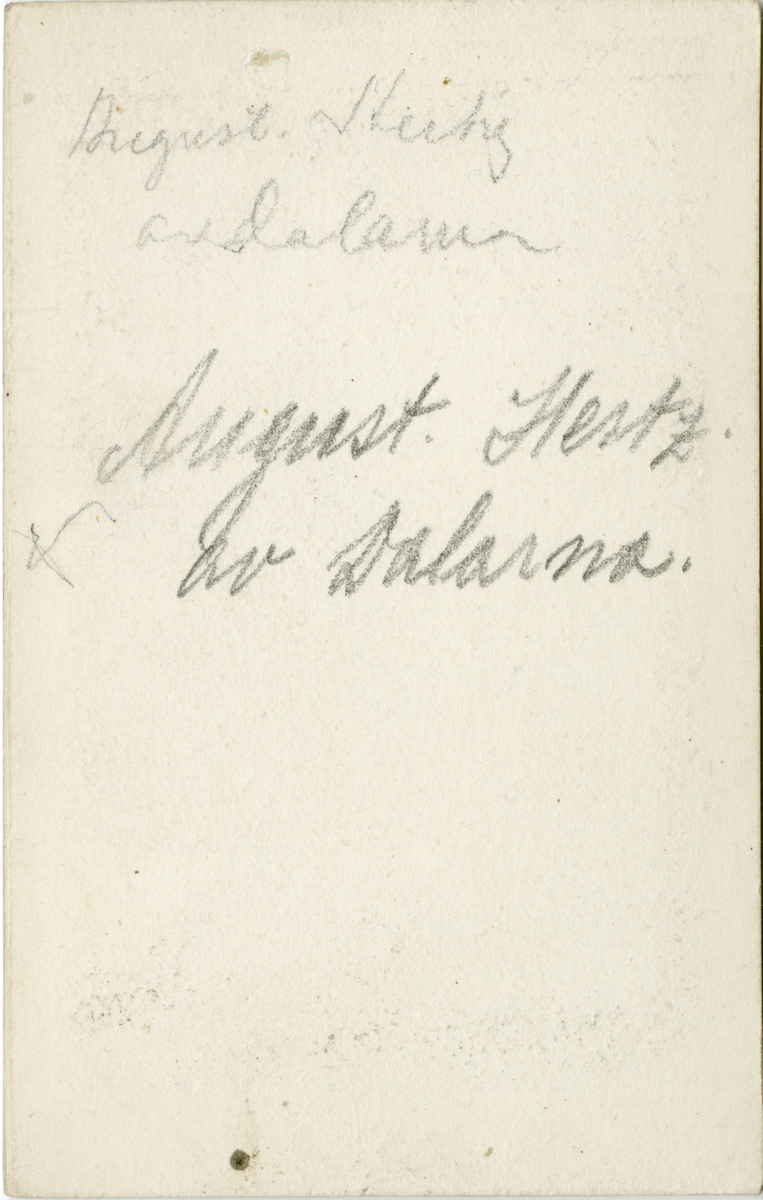 August. Hertig
av Dalarna
August. Hertz.
av Dalarna.